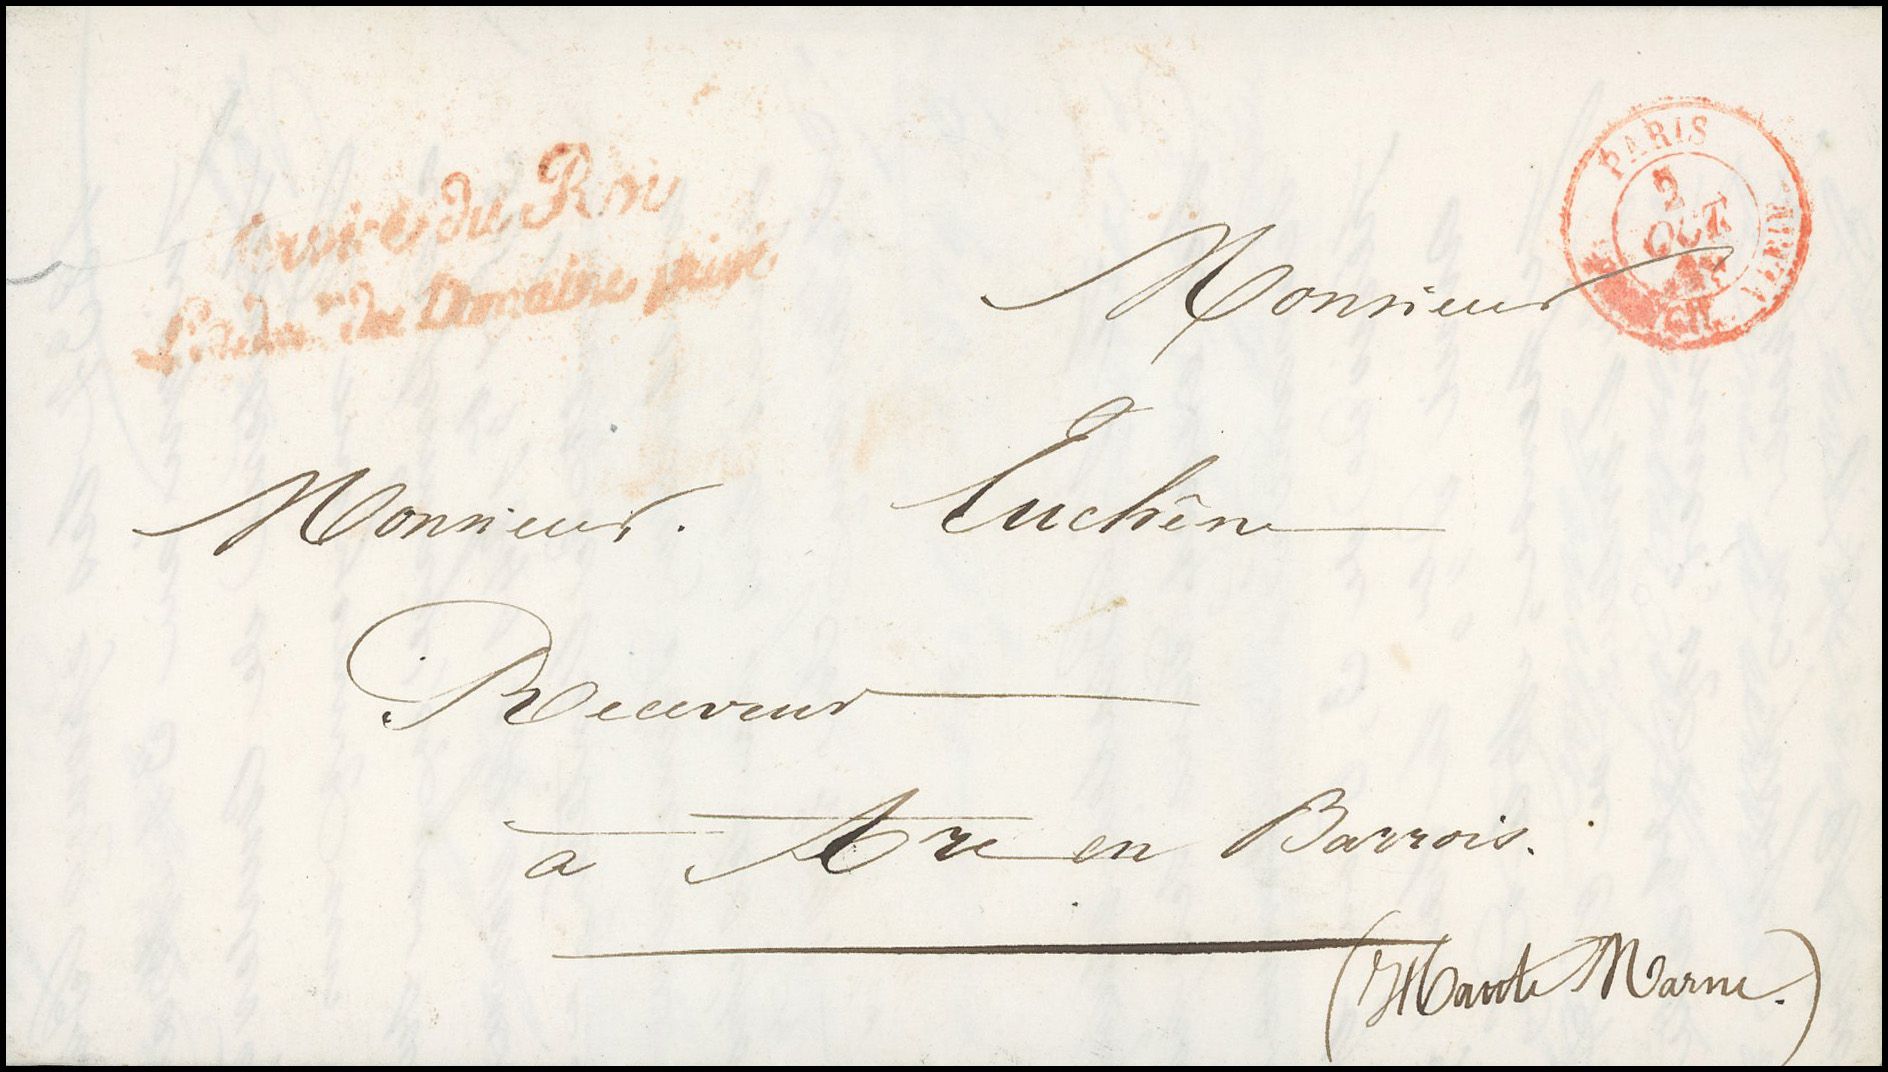 Service du Roi
L'adm.on du Domaine privé
PARIS
2
OCT
Monsieur
Monsieur. Luchêne
Receveur
à Arc en Barrois.
(Haute Marne.)